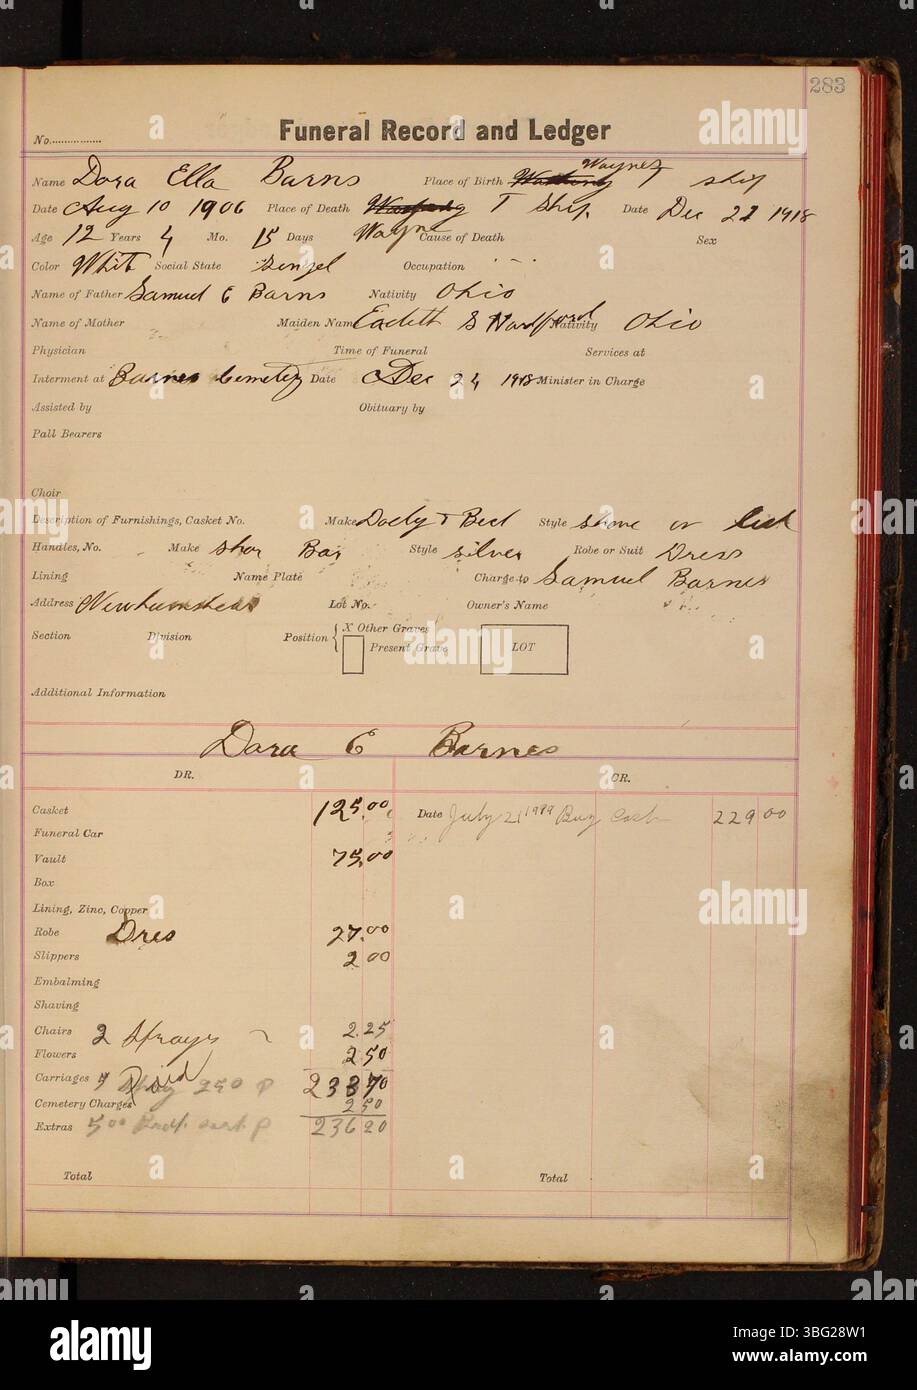 283
No.
Funeral Record and Ledger
Name Dora Ella Barns Place of Birth Wayne T ship
Date Aug 10 1906 Place of Death T Ship Date Dec 22 1918
Age 12 Years 4 Mo. 15 Days Wayne Cause of Death Sex
Color Whit Social State Singel Occupation
Name of Father Samuel E Barns Nativity Ohio
Name of Mother Maiden Name S Hardford Nativity Ohio
Physician Time of Funeral Services at
Interment at Barnes Cemetery Date Dec 24 1918 Minister in Charge
Assisted by Obituary by
Pall Bearers
Choir
Description of Furnishings, Casket No. Make Style
Handles, No. Make Bar Style silver Robe or Suit Dress
Lining Name Plate Charge to Samuel Barnes
Address Lot No. Owner's Name
Section Division Position X Other Graves
Present Grave LOT
Additional Information
Dora E Barnes
DR. CR.
Casket 125.00 Date July 21 Buy Cash 229 00
Funeral Car
Vault 75.00
Box
Lining, Zinc, Copper
Robe Dres 27.00
Slippers 2 00
Embalming
Shaving
Chairs 2 2.25
Flowers 2 50
Carriages Paid 250 P 233 70
Cemetery Charges 2 50
Extras 5.00 P 236 20
Total Total
alamy
Image ID: 3BG28W1
www.alamy.com